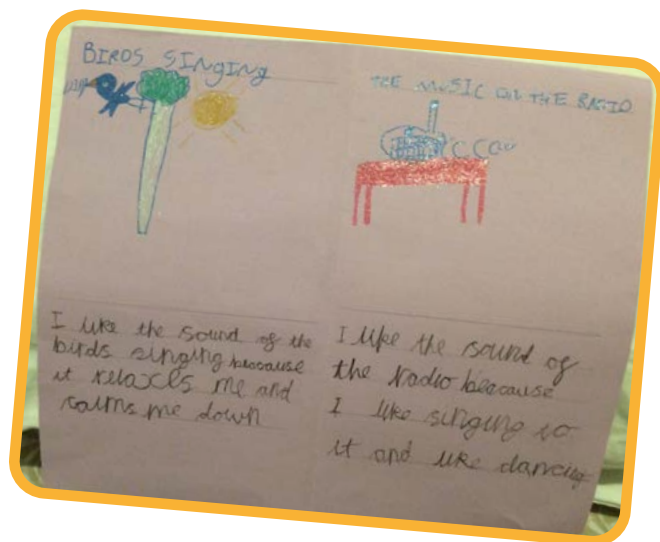 BIRDS SINGING
I like the sound of the
birds singing becouase
it relaxes me and
calms me down
THE MUSIC ON THE RADIO
I like the sound of
the radio beacause
I like singing to
it and like dancing